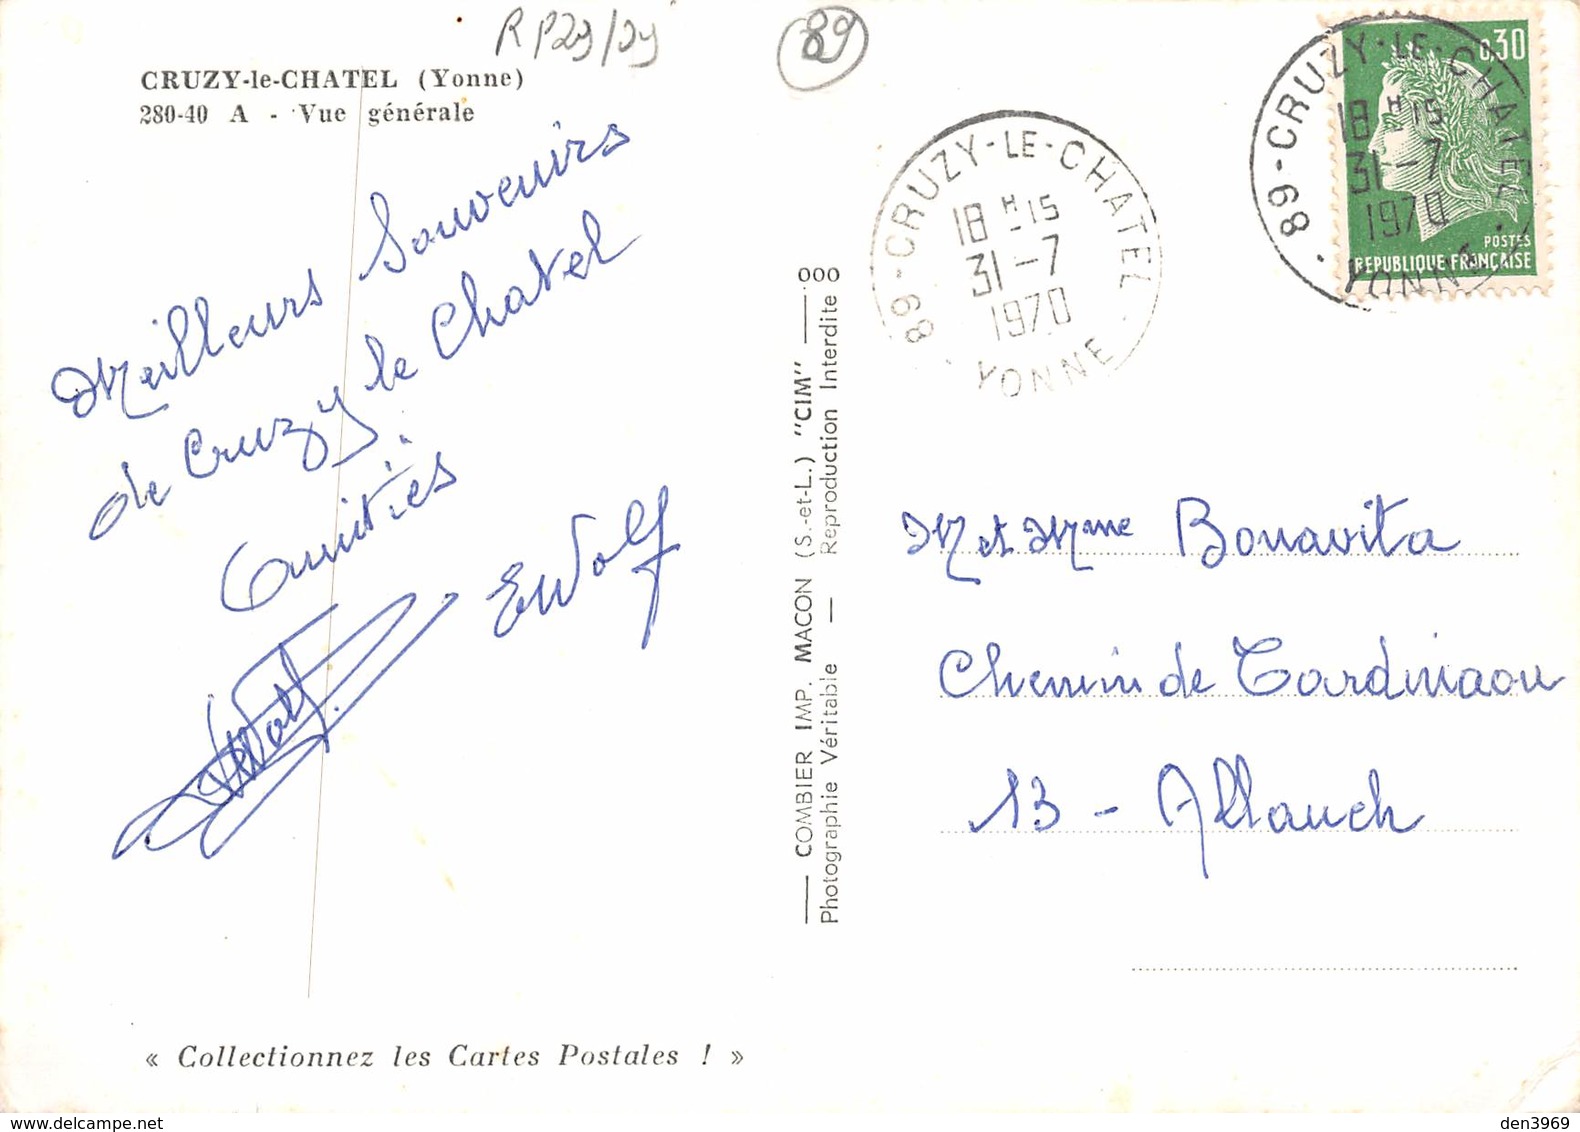 R P29/29
89
CRUZY-le-CHATEL (Yonne)
280-40 A - Vue générale
Meilleurs Souvenirs
de Cruzy le Chatel
Amitiés
EWolf
Wolf
« Collectionnez les Cartes Postales ! »
COMBIER IMP. MACON (S.-et-L.) "CIM" 000
Photographie Véritable — Reproduction Interdite 0
89-CRUZY-LE-CHATEL
18H15
31-7
1970
YONNE
89-CRUZY-LE-CHATEL
18H15
31-7
1970
YONNE
0,30
POSTES
REPUBLIQUE FRANÇAISE
M et Mme Bonavita
Chemin de
13 - Allauch
www.delcampe.net
den3969